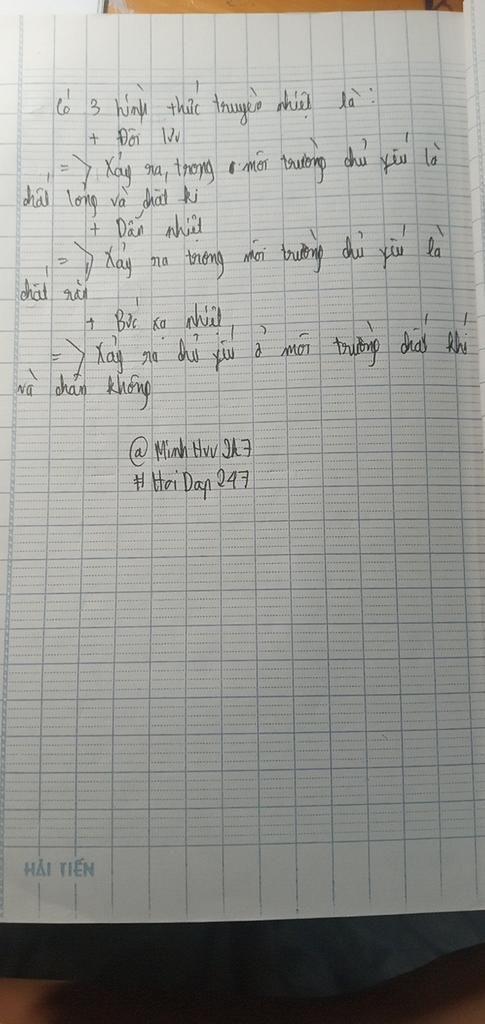 Có 3 hình thức truyền nhiệt là:
+ Đối lưu
=> Xảy ra, trong môi trường chủ yếu là
chất lỏng và chất ki
+ Dẫn nhiệt
=> Xảy ra trong môi trường chủ yếu là
chất rắn
+ Bức xạ nhiệt
=> Xảy ra chủ yếu ở môi trường chất khí
và chân không
@ MinhHuu2k7
# HoiDap247
HẢI TIẾN